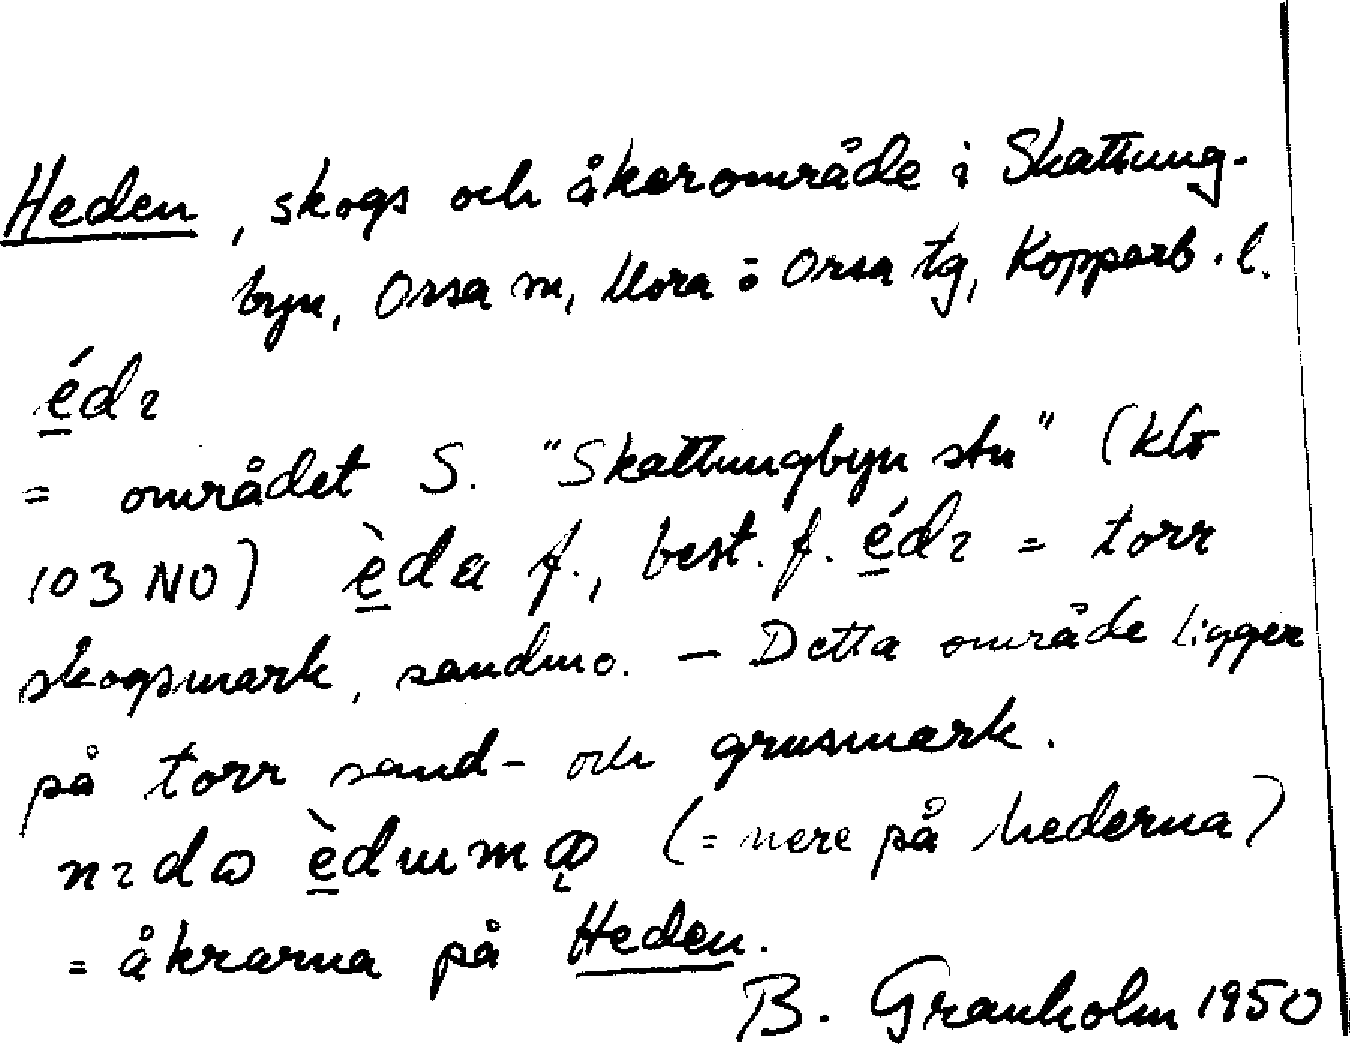 Heden, skogs och åkerområde i Skattung-
byn, Orsa sn, Mora o Orsa tg, Kopparb. l.
é̱dɿ
= området S. "Skattungbyn stn" (kbl
103 NO) è̱da f., best. f. é̱dɿ = torr
skogsmark, sandmo. – Detta område ligger
på torr sand- och grusmark.
(= nere på hederna)
= åkrarna på Heden.
B. Granholm 1950